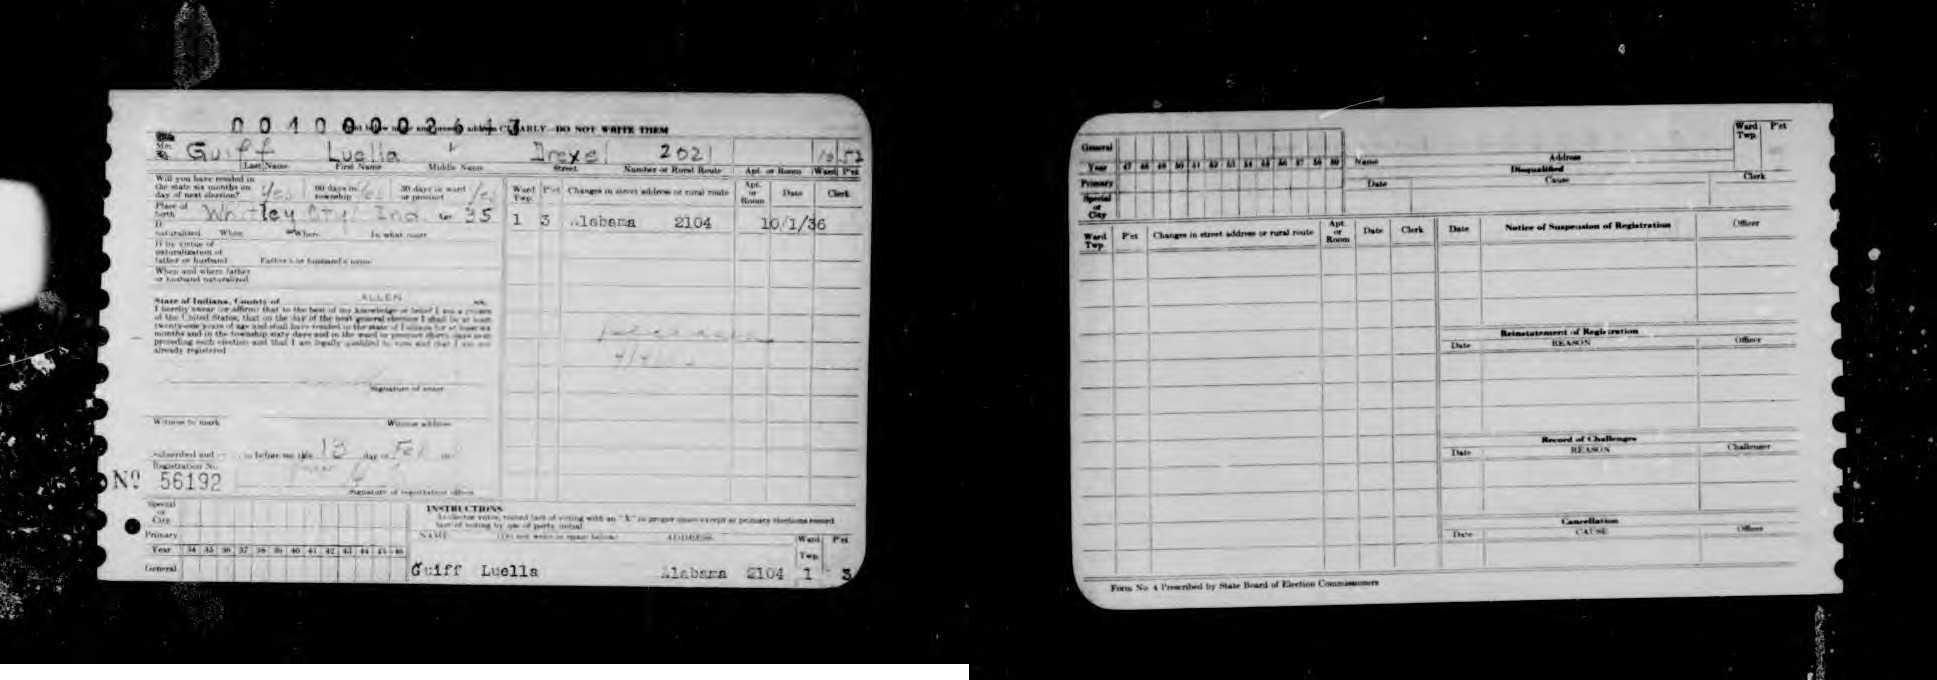 0010000264
CLEARLY—DO NOT WRITE THEM
Guiff Luella Drexel 2021 52
Last Name First Name Middle Name Street Number or Rural Route Apt. or Room Ward P'ct
Will you have resided in
the state six months on
day of next election? Yes 60 days in township Yes 30 days in ward or precinct Yes
Ward Twp. P'ct Changes in street address or rural route Apt. or Room Date Clerk
Place of birth Whitley Cty Ind 35
1 3 Alabama 2104 10/1/36
If naturalized When Where In what court
If by virtue of
naturalization of
father or husband Father's or husband's name
When and where father
or husband naturalized
State of Indiana, County of ALLEN ss.
I hereby swear (or affirm) that to the best of my knowledge or belief I am a citizen
of the United States, that on the day of the next general election I shall be at least
twenty-one years of age and shall have resided in the state of Indiana for at least six
months and in the township sixty days and in the ward or precinct thirty days next
preceding such election and that I am legally qualified to vote and that I am not
already registered
Signature of voter
Witness to mark Witness address
Subscribed and to before me this 13 day of Feb
Registration No.
No 56192
Signature of registration officer
Special or City
Primary
Year 34 35 36 37 38 39 40 41 42 43 44 45 46
General
INSTRUCTIONS
NAME (Do not write in space below) ADDRESS Ward Twp. P'ct
Guiff Luella Alabama 2104 1 3
General
Year 47 48 49 50 51 52 53 54 55 56 57 58 59
Primary
Special or City
Name Address Ward Twp. P'ct
Disqualified
Date Cause Clerk
Ward Twp. P'ct Changes in street address or rural route Apt. or Room Date Clerk
Date Notice of Suspension of Registration Officer
Reinstatement of Registration
Date REASON Officer
Record of Challenges
Date REASON Challenger
Cancellation
Date CAUSE Officer
Form No. 4 Prescribed by State Board of Election Commissioners